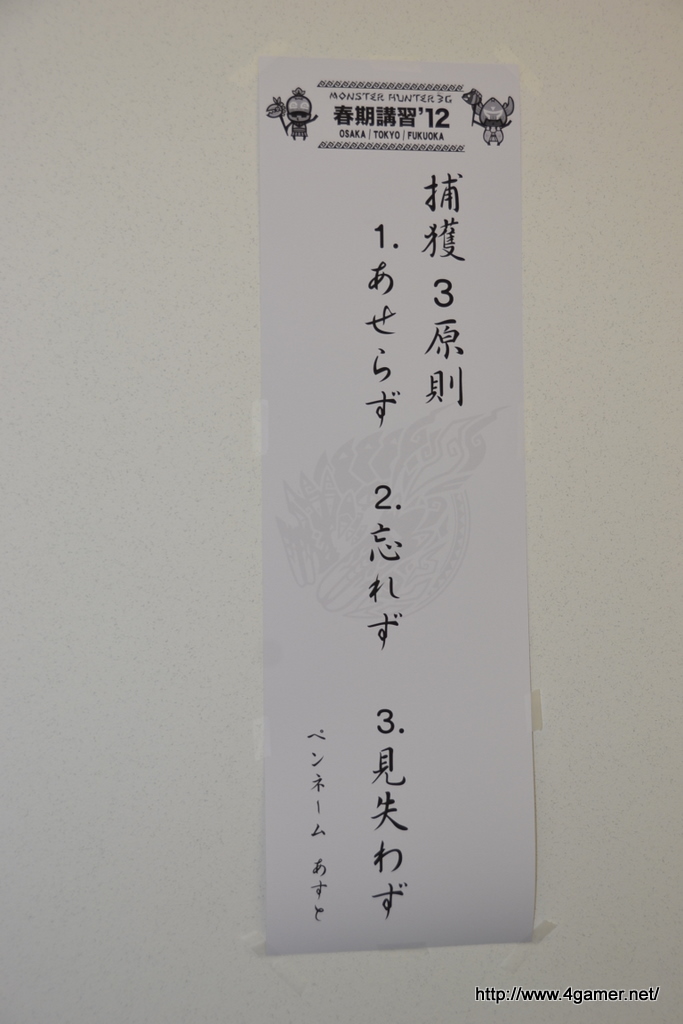 MONSTER HUNTER 3G
春期講習'12
OSAKA / TOKYO / FUKUOKA
捕獲3原則
1.あせらず 2.忘れず 3.見失わず
ペンネーム あすと
http://www.4gamer.net/